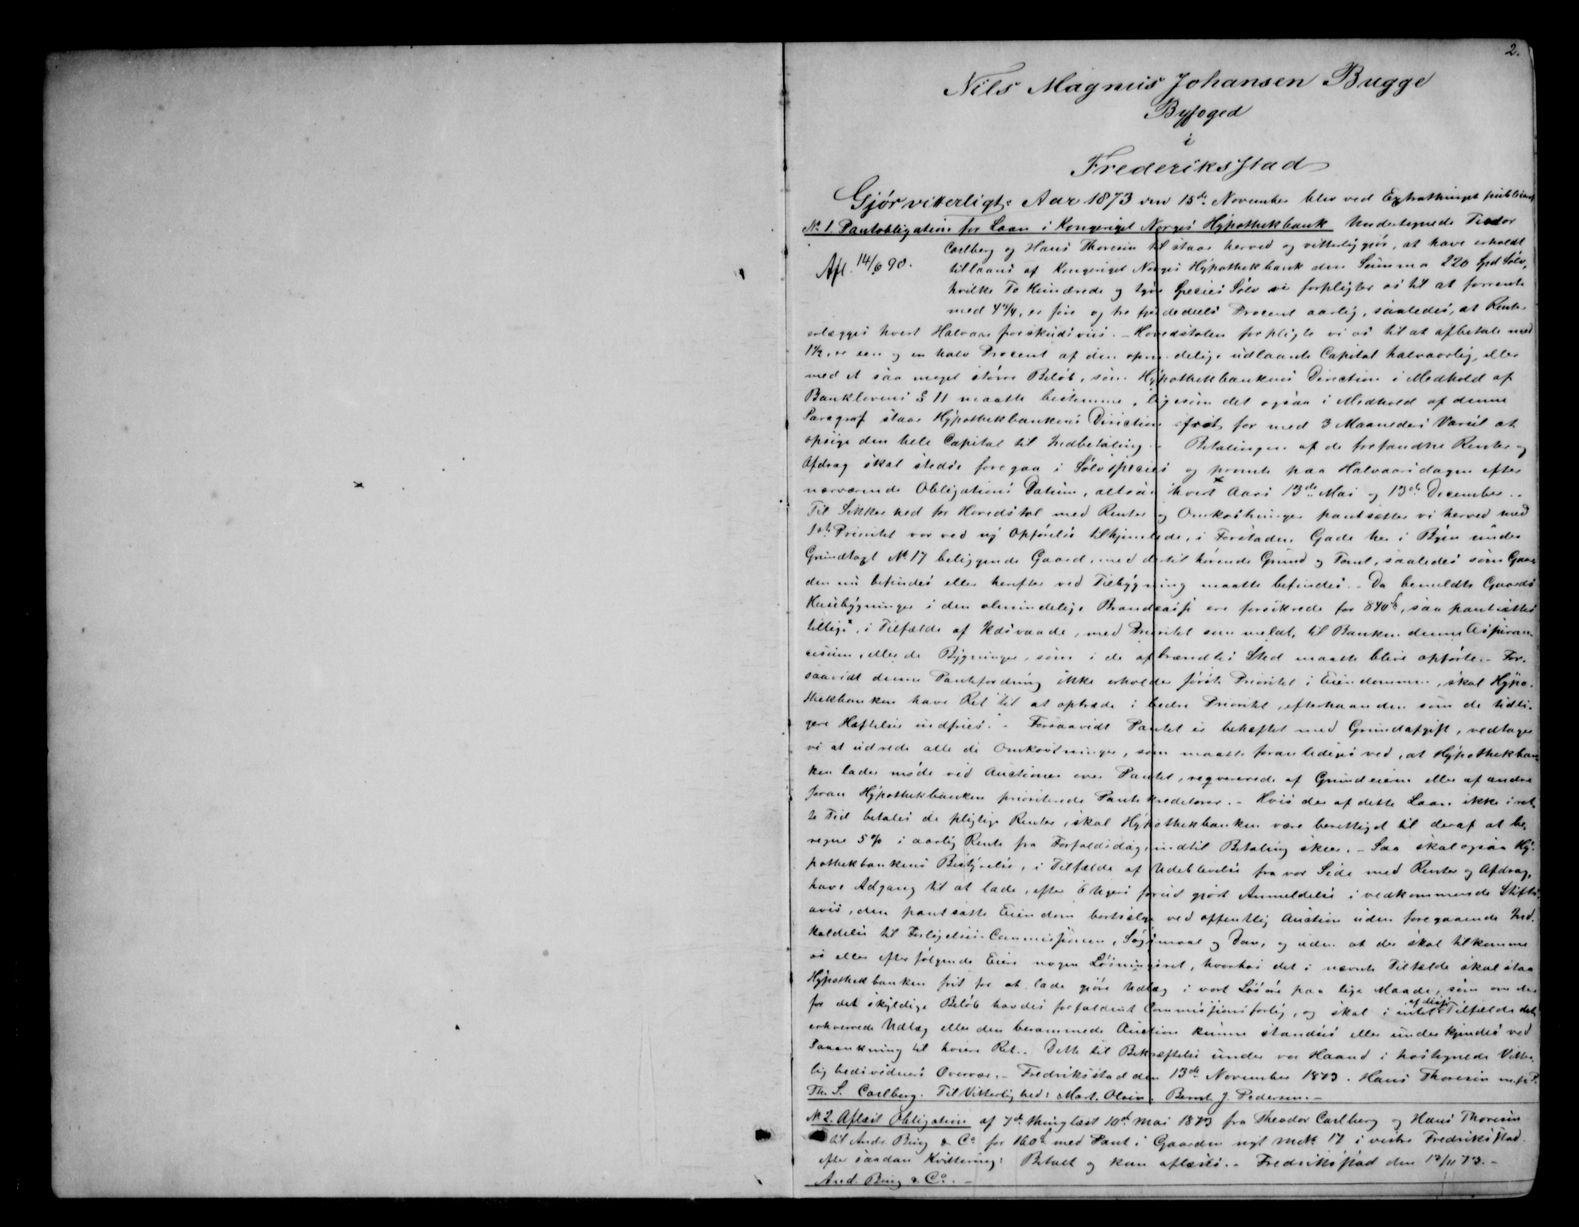 2.
Nils Magnus Johansen Bugge
Byfoged
i
Frederiksstad
Gjør vitterligt: Aar 1873 den 15de November blev ved Extrathinget publiceret
No 1. Pantobligation for Laan i Kongeriget Norges Hypothekbank Undertegnede Teodor
Carlberg og Hans Thoresen tilstaar herved og vitterliggjør, at have erholdt
Afl. 14/6 90.
tillaans af Kongeriget Norges Hypothekbank den Summa 220 Spd Sølv,
hvilke To Hundrede og tyve Species Sølv vi forpligter os til at forrente
med 4 3/4, er fire og tre fjerdedeels Procent aarlig, saaledes, at Renten
erlægges hvert Halvaar forskudsviis. - Hovedstolen forpligte vi os til at afbetale med
1 1/2, er een og en halv Procent af den oprindelige udlaante Capital halvaarlig, eller
med et saa meget større Beløb, som Hypothekbankens Direction i Medhold af
Banklovens § 11 maatte bestemme, ligesom det ogsaa i Medhold af denne
Paragraf staar Hypothekbankens Direction frit for med 3 Maaneders Varsel at
opsige den hele Capital til Indbetaling. Betalingen af de forfaldne Renter og
Afdrag skal stedse foregaa i Sølvspecies og promte paa Halvaarsdagen efter
nærværende Obligations Datum, altsaa hvert Aars 13de Mai og 13de December. -
Til Sikkerhed for Hovedstol med Renter og Omkostninger pantsætter vi herved med
1ste Prioritet vor ved ny Opførelse tilhjemlede, i Forstaden, Gade her i Byen under
Grundtaxt No 17 beliggende Gaard, med dertil hørende Grund og Tomt, saaledes som Gaar-
den nu befindes eller herefter ved Tilbygning maatte befindes. - Da bemeldte Gaards
Huusbygninger i den almindelige Brandcasse ere forsikrede for 840 Spd, saa pantsættes
tillige, i Tilfælde af Ildsvaade, med Prioritet som meldt, til Banken denne Assuran-
cesum, eller de Bygninger, som i de afbrændtes Sted maatte blive opførte. - For-
saavidt denne Pantefordring ikke erholder første Prioritet i Eiendommen, skal Hypo-
thekbanken have Ret til at optræde i bedre Prioritet, efterhaanden som de tidli-
gere Hæftelser indfries. - Forsaavidt Pantet er behæftet med Grundafgift, vedtager
vi at udrede alle de Omkostninger, som maatte foranlediges ved, at Hypothekban-
ken lader møde ved Auctioner over Pantet, reqvirerede af Grundeieren eller af andre
foran Hypothekbanken prioriterede Pantekreditorer. - Hvis der af dette Laan ikke i ret-
te Tid betales de pligtige Renter, skal Hypothekbanken være berettiget til deraf at be-
regne 5 % i aarlig Rente fra Forfaldsdag, indtil Betaling skeer. - Saa skal ogsaa Hy-
pothekbankens Bestyrelse, i Tilfælde af Udeblivelse fra vor Side med Renter og Afdrag,
have Adgang til at lade, efter 6 Ugers forud gjort Anmeldelse i vedkommende Stifts-
avis, den pantsatte Eiendom bortsælge ved offentlig Auction uden foregaaende Ind-
kaldelse til Forligelses Commissionen, Søgsmaal og Dom, og uden at der skal tilkomme
os eller efterfølgende Eiere nogen Løsningsret, hvorhos det i nævnte Tilfælde skal staa
Hypothekbanken frit for at lade gjøre Udlæg i vort Løsøre paa lige Maade, som om der
for det skyldige Beløb havdes forfaldent Commissionsforlig, og skal i intet af disse Tilfælde det
erhvervede Udlæg eller den berammede Auction kunne standses eller underkjendes ved
Paaankning til høiere Ret. - Dette til Bekræftelse under vor Haand i hostegnede Vitter-
lighedsvidners Overvær. - Fredriksstad den 13de November 1873. Hans Thoresen m.f.P.
Th. S. Carlberg. Til Vitterlighed: Mart. Olsen. Bernt J. Pedersen. -
No 2. Aflæst Obligation af 7de thinglæst 10de Mai 1873 fra Theodor Carlberg og Hans Thoresen
til Andr. Buig & Co for 160 Spd med Pant i Gaarden nyt Matr. 17 i vestre Fredriksstad
efter saadan Kvittering: Betalt og kan aflæses. - Fredriksstad den 13/11 73. -
And. Buig & Co. -